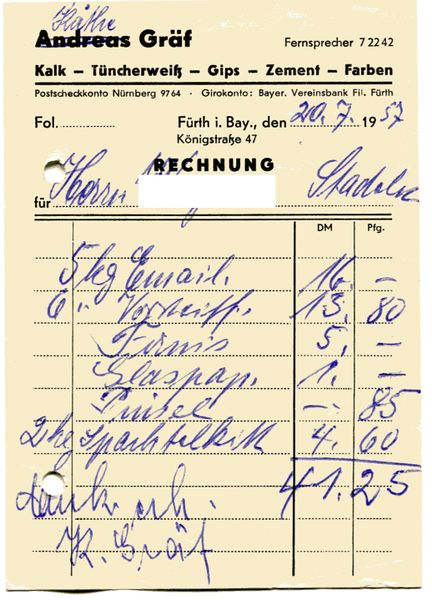 Käthe
Andreas Gräf Fernsprecher 7 22 42
Kalk – Tüncherweiß – Gips – Zement – Farben
Postscheckkonto Nürnberg 97 64 · Girokonto: Bayer. Vereinsbank Fil. Fürth
Fol. Fürth i. Bay., den 20. 7. 1957
Königstraße 47
RECHNUNG
für Herrn Stadeln
DM Pfg.
5 kg Email. 16. –
6 " Vorstreichf. 13. 80
Firnis 5. –
Glaspap. 1. –
Pinsel –. 85
2 kg Spachtelkitt 4. 60
41. 25
Dank. erh.
K. Gräf